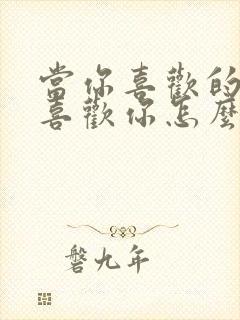 當你喜歡的
喜歡你怎麼
磐九年